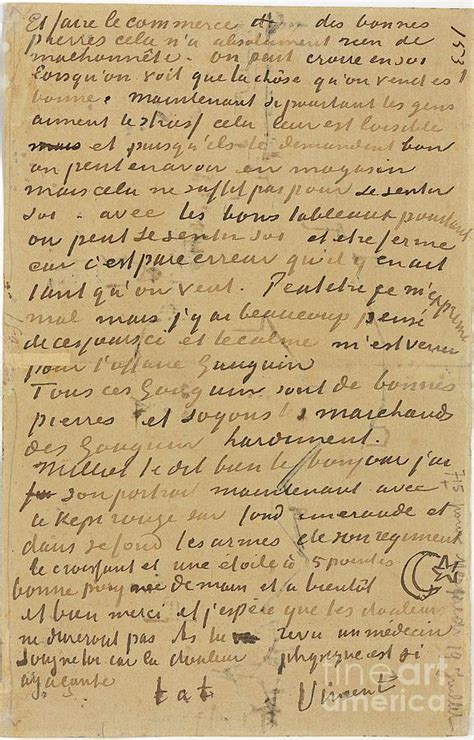 Et faire le commerce de des bonnes
pierres cela n'a absolument rien de
malhonnête. on peut croire en soi
lorsqu'on voit que la chôse qu'on vend est
bonne. maintenant si pourtant les gens
aiment le strass cela leur est loisible
mais et puisqu'ils le demandent bon
on peut en avoir en magasin
mais cela ne suffit pas pour se sentir
soi - avec les bons tableaux pourtant
on peut se sentir soi et etre ferme
car c'est pare erreur qu'il y en ait
tant qu'on veut. Peut etre je m'exprime
mal mais j'y ai beaucoup pensé
de ces jours ci et le calme m'est venu
pour l'affaire Gauguin
Tous ces Gauguin sont de bonnes
pierres et soyons les marchands
des Gauguin hardiment.
Milliet te dit bien le bonjour j'ai
son portrait maintenant avec
le Kepi rouge sur fond emeraude et
dans ce fond les armes de son regiment
le croissant et une étoile à 5 pointes
bonne poignée de main et a bientôt
et bien merci et j'espère que tes douleurs
ne dureront pas As tu revu un médecin
Soigne toi car la douleur physique est si
agaçante t. à t. Vincent
153
fine art
america